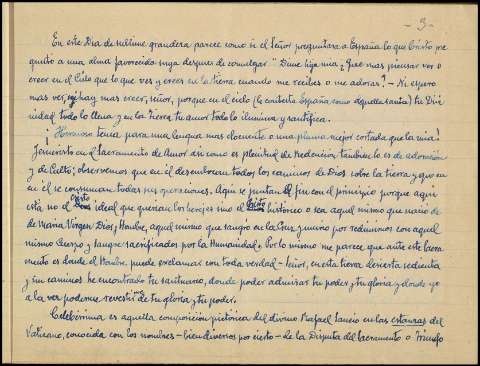 - 3 -
En este Dia de sublime grandeza parece como si el Señor preguntara a España lo que Cristo pre
guntó a una alma favorecida suya despues de comulgar. "Dime hija mia ¿Que mas piensas ver o
creer en el Cielo que lo que ves y crees en la tierra cuando me recibes o me adoras? - Ni espero
mas ver, ni hay mas creer, señor, porque en el cielo (le contesta España como aquella santa) tu Divi
nidad todo lo llena y en la tierra tu amor todo lo ilumina y santifica.
¡Hermoso tema para una lengua mas elocuente o una pluma mejor cortada que la mia!
Jesucristo en el Sacramento de Amor asi como es plenitud de Redencion tambien lo es de adoración
y de Culto; observemos que en él desembocan todos los caminos de Dios sobre la tierra y que en
en él se consuman todas sus operaciones. Aqui se juntan el fin con el principio porque aqui
está no el Cristo ideal que querian los herejes sino el Cristo histórico o sea aquel mismo que nació de
de Maria Virgen Dios y Hombre, aquel mismo que sangró en la Cruz y murió por redimirnos con aquel
mismo cuerpo y sangre sacrificados por la Humanidad. Por lo mismo me parece que ante este Sacra
mento es donde el Hombre puede exclamar con toda verdad - Señor, en esta tierra desierta sedienta
y sin caminos he encontrado tu santuario, donde poder admirar tu poder y tu gloria y donde yo
a la vez podemne revestir de tu gloria y tu poder.
Celebérrima es aquella composición pictórica del divino Rafael Sancio en las estancias del
Vaticano, conocida con los nombres - bien diversos por cierto - de la Disputa del Sacramento o Triunfo